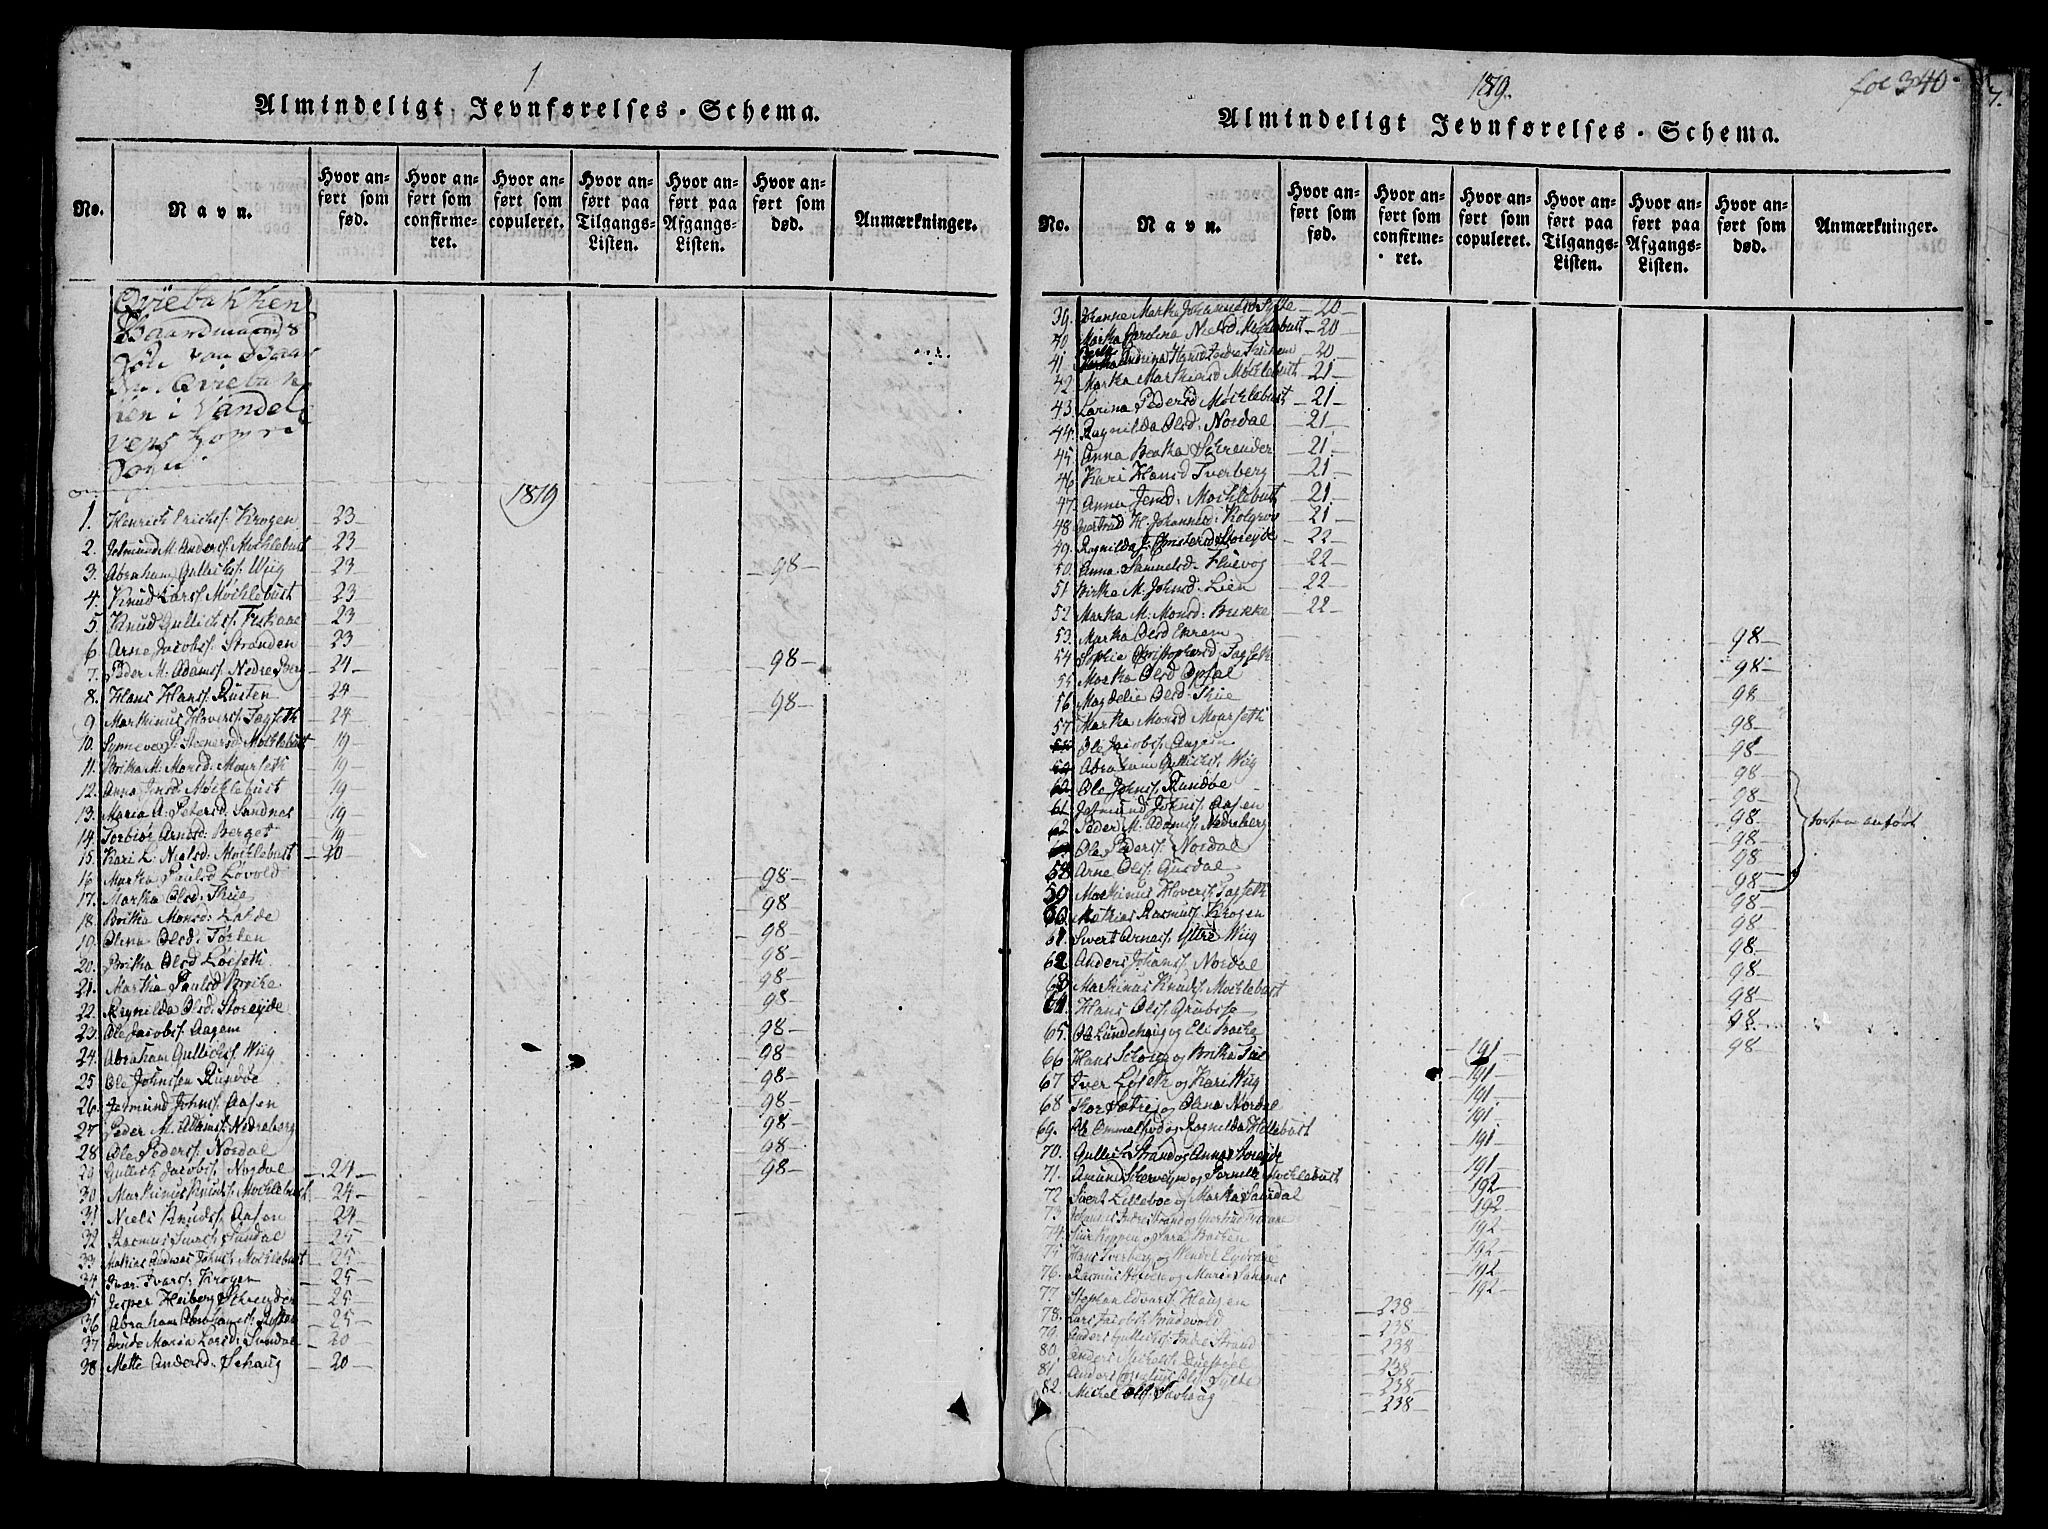 1
Almindeligt Jevnførelses-Schema.
No.
Navn.
Hvor anført som fød.
Hvor anført som confirmeret.
Hvor anført som copuleret.
Hvor anført paa Tilgangs-Listen.
Hvor anført paa Afgangs-Listen.
Hvor anført som død.
Anmærkninger.
Qviebakken
Gaardmands
Qvieba
ken i Vandel
1819
1. Henrich Erichs. Krogen 23
2. Jetmund M. Anders. Mochlebust 23
3. Abraham Gullichs. Wiig 23 98
4. Knud Lars. Mochlebust 23
5. Knud Gullichs. 23
6. Arne Jacobs. Stranden 23
7. Peder M. Adams. Nedre 24 98
8. Hans Hans. Rusten 24 98
9. Markinus Hovers. Tagseth 24
10. Synneve P. Steenersd. Mochlebust 19
11. Britha M. Monsd. Mourseth 19
12. Anna Jensd. Mochlebust 19
13. Maria A. Petersd. Sandnæs 19
14. Torbiør Arnesd. Berget 19
15. Kari L. Nielsd. Mochlebust 20
16. Martha Paulsd. Løvold 98
17. Martha Olsd. Thue 98
18. Britha Monsd. 98
19. Olina Olsd. 98
20. Britha Olsd. Løeseth 98
21. Martha Paulsd. 98
22. Ragnilda Olsd. Storeyde 98
23. Ole Jacobs. Aagem 98
24. Abraham Gullichs. Wiig 98
25. Ole Johnssen Rundøe 98
26. Jetmund Johns. Aasen 98
27. Peder M. Adams. Nedreberg 98
28. Ole Peders. Nordal 98
29. Gullich Jacobs. Nordal 24
30. Markinus Knuds. Mochlebust 24
31. Niels Knuds. Aasen 24
32. Rasmus Sivers. Sundal 25
33. Mathias Andreas Johns. Mochlebust 25
34. Ivar Ivars. Krogen 25
35. Jesper Heiberg Schreuder 25
36. Abraham Abrahams. 25
37. Maria Larsd. Sundal 20
38. Mette Andersd. Schaug 20
1819.
fol 340
Almindeligt Jevnførelses-Schema.
No.
Navn.
Hvor anført som fød.
Hvor anført som confirmeret.
Hvor anført som copuleret.
Hvor anført paa Tilgangs-Listen.
Hvor anført paa Afgangs-Listen.
Hvor anført som død.
Anmærkninger.
39. Martha Johannesd. Sylte 20
40. Martha Carolina Nielsd. Mochlebust 20
41. 20
42. Martha Martinsd. Mochlebust 21
43. Larina Pedersd. Mochlebust 21
44. Ragnilda Olsd. Nordal 21
45. Anna Beatha Schreuder 21
46. Kari Hansd. Tverberg 21
47. Anna Jensd. Mochlebust 21
48. Giertrud H. Johannesd. Kolgrov 21
49. Ragnilda Storeyde 22
50. Anna Samuelsd. Fluevog 22
51. Birthe M. Johnsd. Lien 22
52. Martha M. Monsd. Bukke 22
53. Martha Olsd. Ekrem 98
54. Sophie Christophersd. Tagseth 98
55. Martha Olsd. Opsal 98
56. Magdelie Olsd. Thue 98
57. Martha Monsd. Mourseth 98
Ole Jacobs. Aagem 98
Abraham Gullichs. Wiig 98
Ole Johns. Rundøe 98
61. Jetmund Johns. Aasen 98
62. Peder M. Adams. Nedreberg 98
Ole Peders. Nordal 98
forhen anført
58. Arne Ols. Gusdal 98
59. Markinus Hovers. Tagseth 98
60. Mathias Rasmus. Krogen 98
61. Sivert Arnes. Ytre Wiig 98
62. Anders Johans. Nordal 98
63. Markinus Knuds. Mochlebust 98
64. Hans Ols. 98
65. Ole Lundehaug og Eli 191
66. Hans Schorge og Britha Tue 191
67. Iver Løseth og Kari Wiig 191
68. Thor Sætre og Olina Nordal 191
69. Ole Ommelsvod og Ragnilda Hellebust 191
70. Gullich Strand og Anna Storeyde 191
71. Amund og Pernille Mochlebust 192
72. Sivert Lilleboe og Martha Sundal 192
73. Johannes Indre Strand og Giertrud 192
74. Siur Kippen og Sara Bosten 192
75. Hans Tverberg og Wendel 192
76. Rasmus og Maria Sandnes 192
77. Stephan Edvars. Haugen 238
78. Lars Jacobs. Brudevold 238
79. Anders Gullichs. Indre Strand 238
80. Anders Michels. 238
81. Anders Ols. Sylte 238
82. Michel Ols. 238